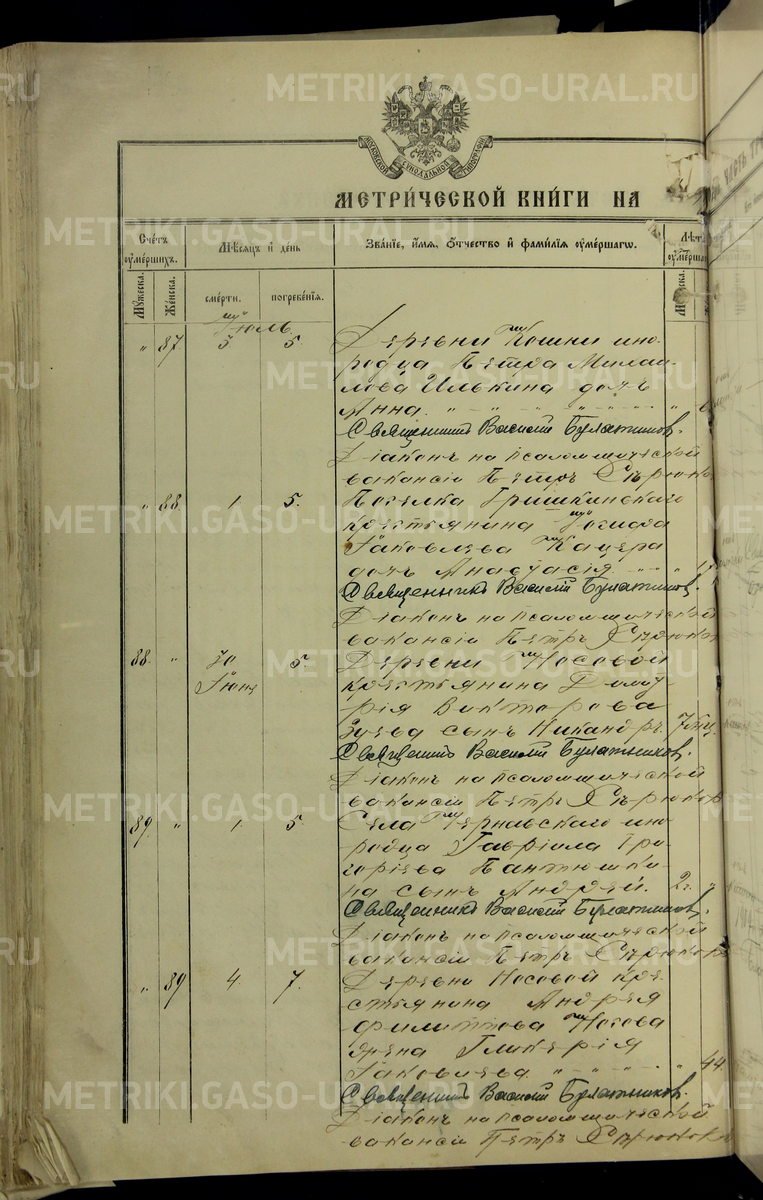 METRIKI.GASO-URAL.RU
МОСКОВСКОЙ СѴНОДАЛЬНОЙ ТИПОГРАФІИ
МЕТРИ́ЧЕСКОЙ КНИ́ГИ НА
Сче́тъ оу҆ме́ршихъ.
Мѣ́сяцъ и҆ день
Зва́нїе, и҆́мя, ѻ҆́тчество и҆ фами́лїя оу҆ме́ршагѡ.
Лѣт
оу҆ме́рша
Мꙋ́жеска.
Же́нска.
сме́рти.
погребе́нїя.
Іюль
" 87. 3 5. Деревни Кошки ино-
родца Петра Михаи-
лова Илькина дочь
Анна.
Священникъ Василій Булатников.
Діаконъ на псаломщической
вакансіи Петръ
" 88. 1. 5. Поселка Гришкинскаго
крестьянина Іосифа
Іаковлева
дочь Анастасія
Священникъ Василій Булатников.
Діаконъ на псаломщической
вакансіи Петръ
88. " 30 5. Деревни Носовой
Іюня крестьянина Дими-
трія Викторова
Зуева сынъ Никандръ. 7 мѣс.
Священникъ Василій Булатников.
Діаконъ на псаломщической
вакансіи Петръ
89. " 1. 5. Села ино-
родца Гавріила Гри-
горіева Пантюшки-
на сынъ Андрей. 2 г. "
Священникъ Василій Булатников.
Діаконъ на псаломщической
вакансіи Петръ
" 89 4. 7. Деревни Носовой кре-
стьянина Андрея
Филиппова Носова
жена Гликерія
Іаковлева 44.
Священникъ Василій Булатников.
Діаконъ на псаломщической
вакансіи Петръ